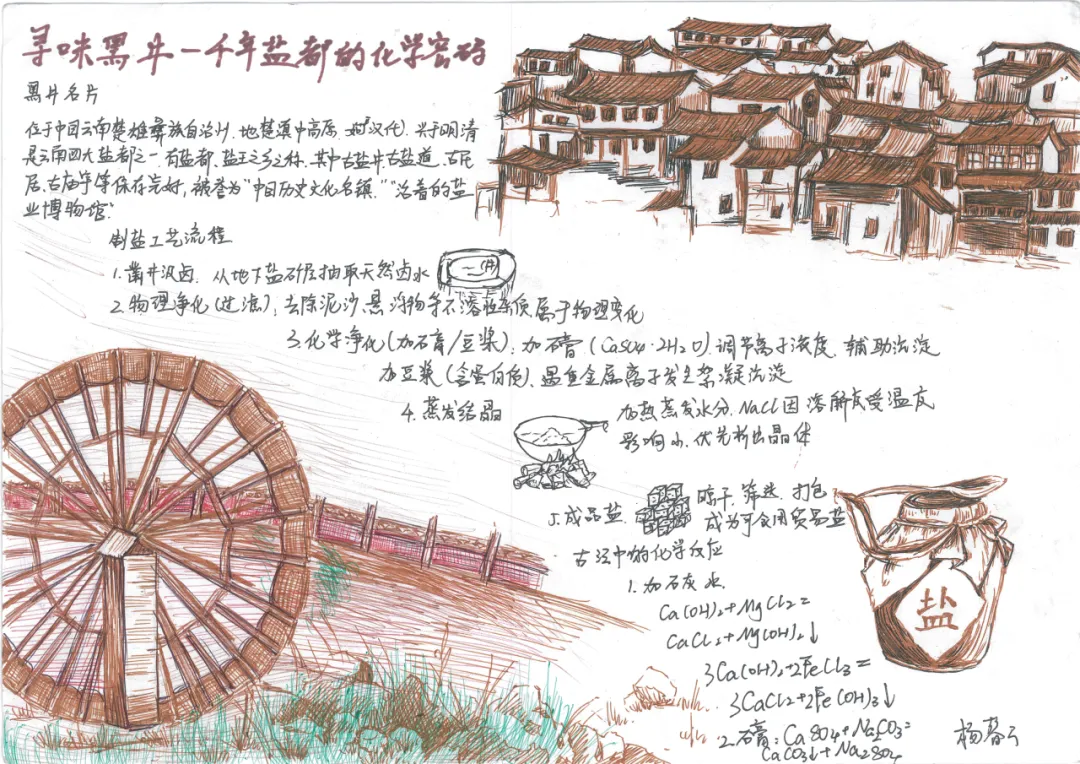 寻味黑井—千年盐都的化学密码
黑井名片
位于中国云南楚雄彝族自治州.地楚滇中高原.汉代).兴于明清
是云南四大盐都之一.有盐都、盐王之乡之称.其中古盐井古盐道.古民
居、古庙宇等保存完好,被誉为"中国历史文化名镇.""活着的盐
业博物馆."
制盐工艺流程
1.凿井汲卤.从地下盐矿层抽取天然卤水
2.物理净化(过滤);去除泥沙.悬浮物等不溶性杂质属于物理变化
3.化学净化(加石膏/豆浆);加石膏(CaSO4·2H2O).调节离子浓度.辅助沉淀
加豆浆(含蛋白质).遇重金属离子发生絮凝沉淀
4.蒸发结晶
加热蒸发水分.NaCl因溶解度受温度
影响小.优先析出晶体
5.成品盐.
晾干.筛选.打包
成为可食用贸易盐
古法中的化学反应
1.加石灰水
Ca(OH)2+MgCl2=
CaCl2+Mg(OH)2↓
3Ca(OH)2+2FeCl3=
3CaCl2+2Fe(OH)3↓
2.石膏:CaSO4+Na2CO3=
CaCO3↓+Na2SO4
盐